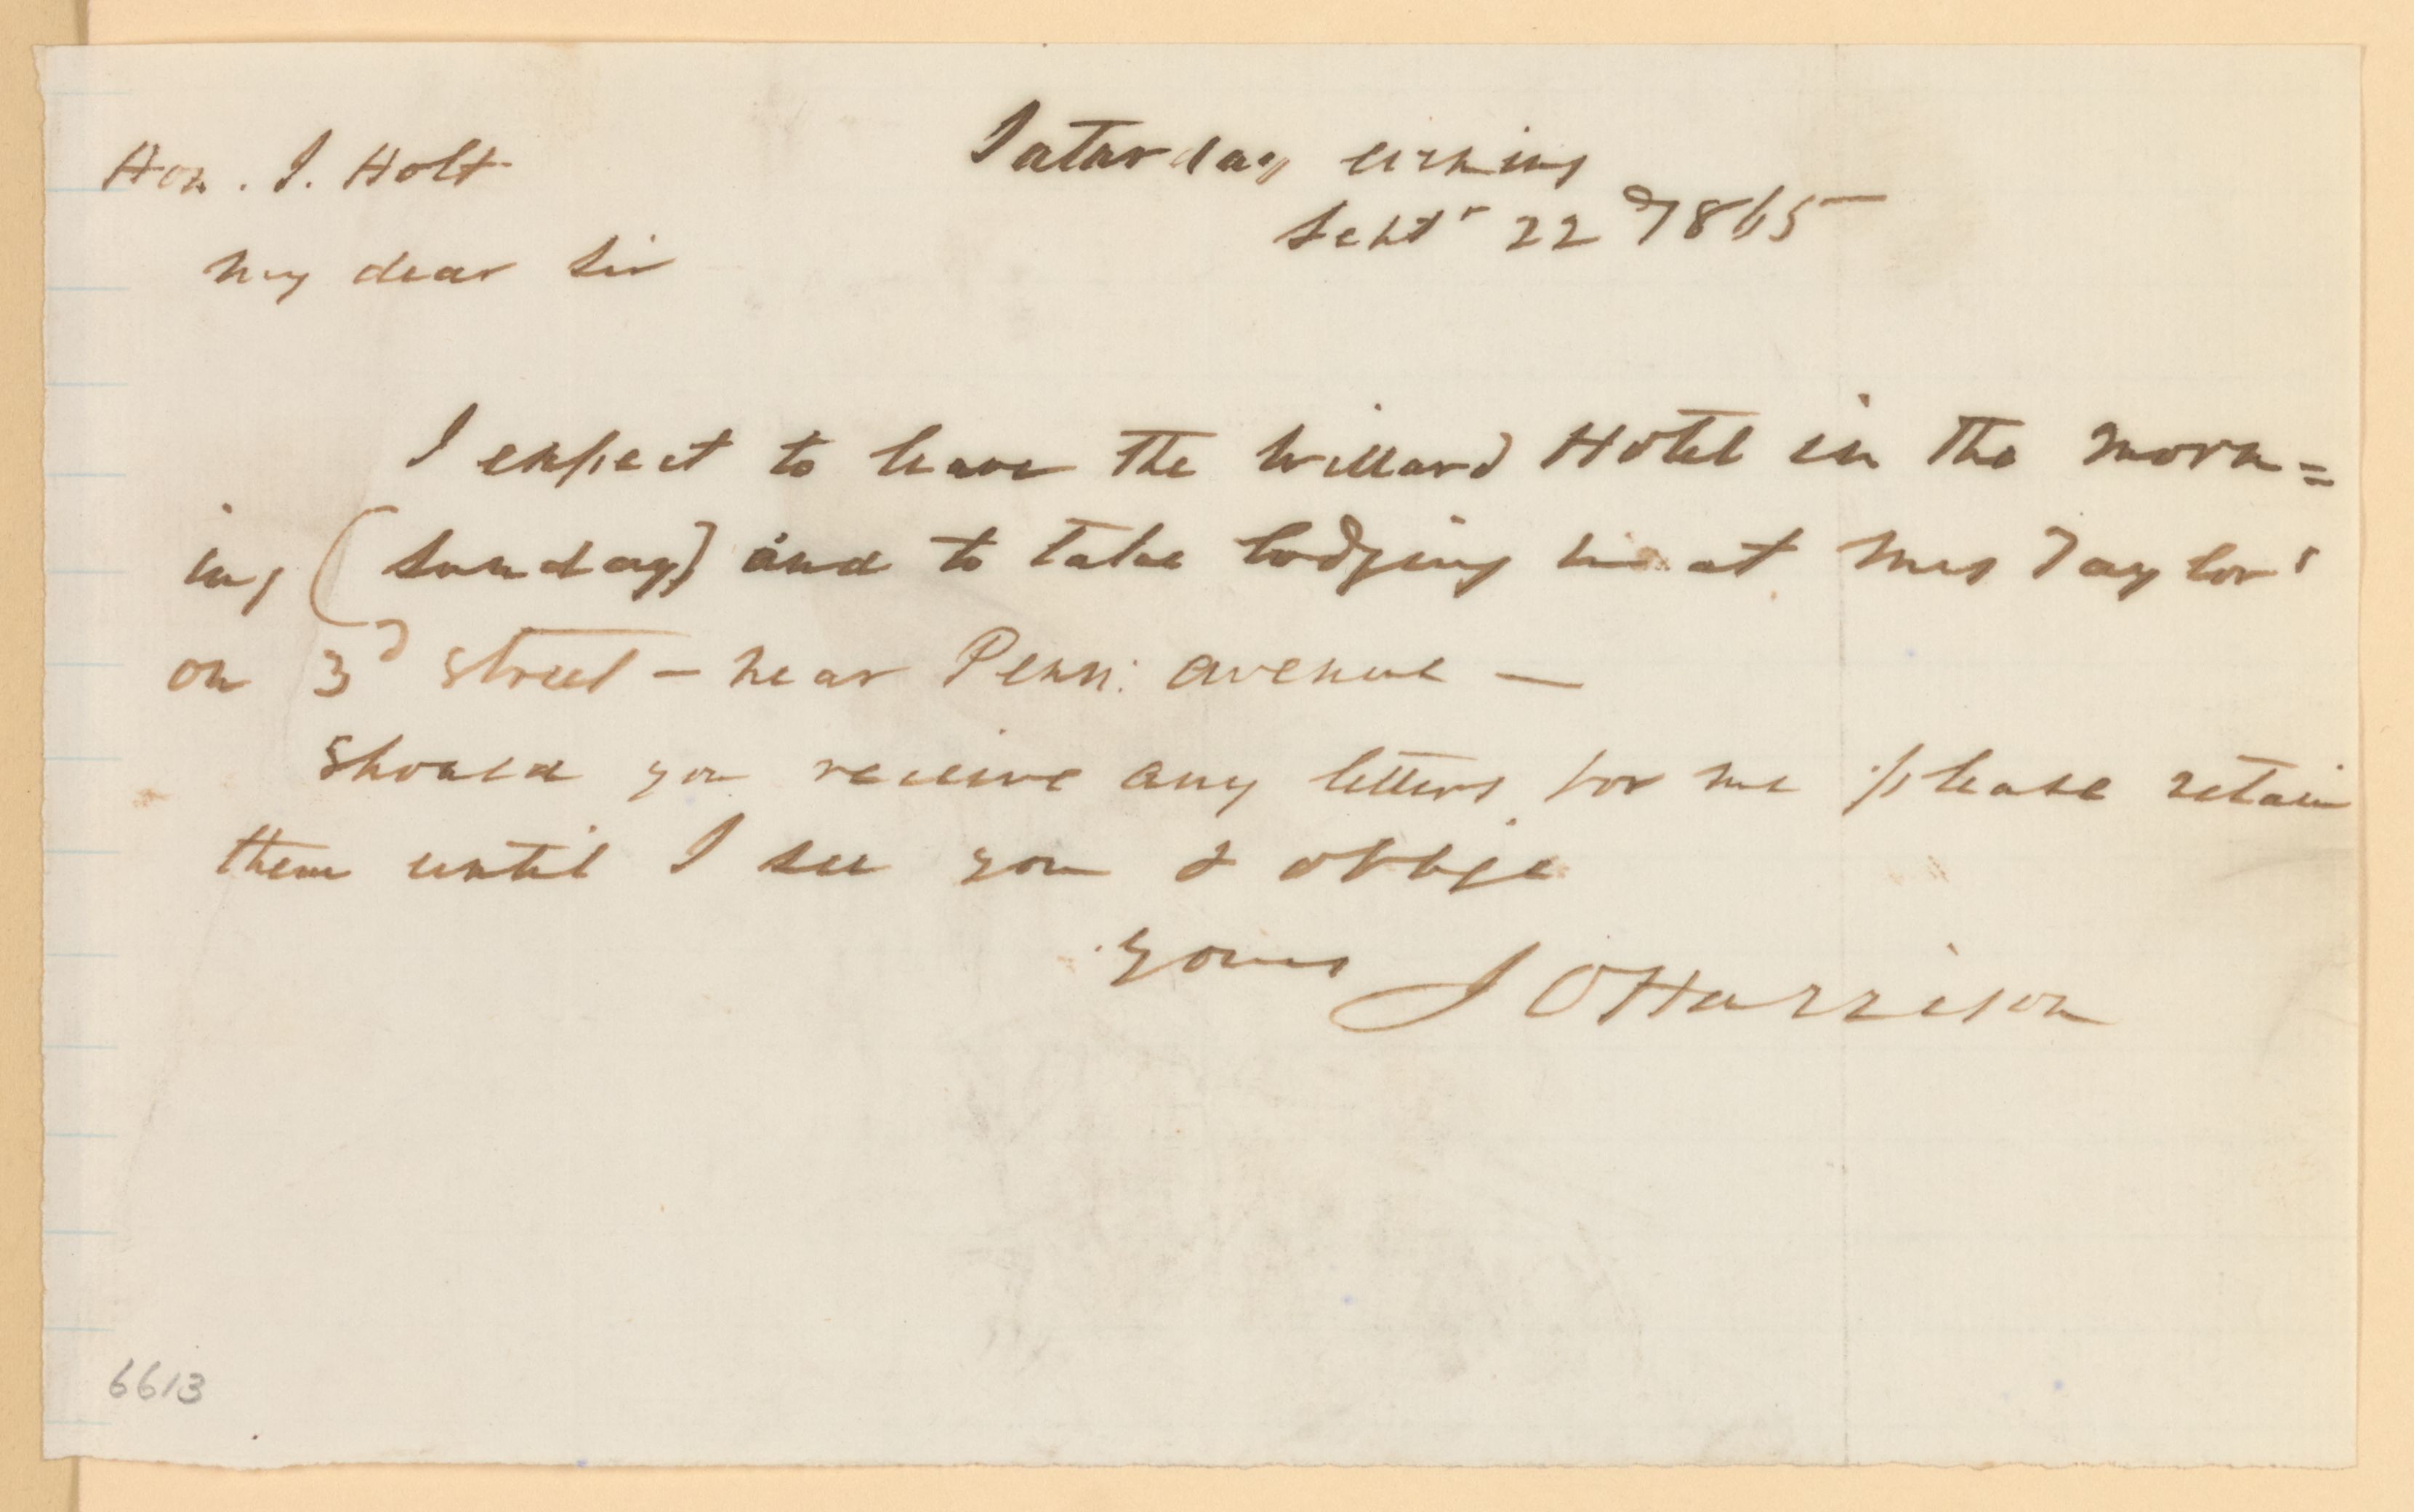 Saturday evening
Septr 22d 1865
Hon. J. Holt
My dear Sir
I expect to leave the Willard Hotel in the morn=
ing (Sunday) and to take lodging at Mrs Taylor's
on 3d Street - near Penn: avenue -
Should you receive any letters for me please retain
them until I see you & oblige
Yours J O Harrison
6613